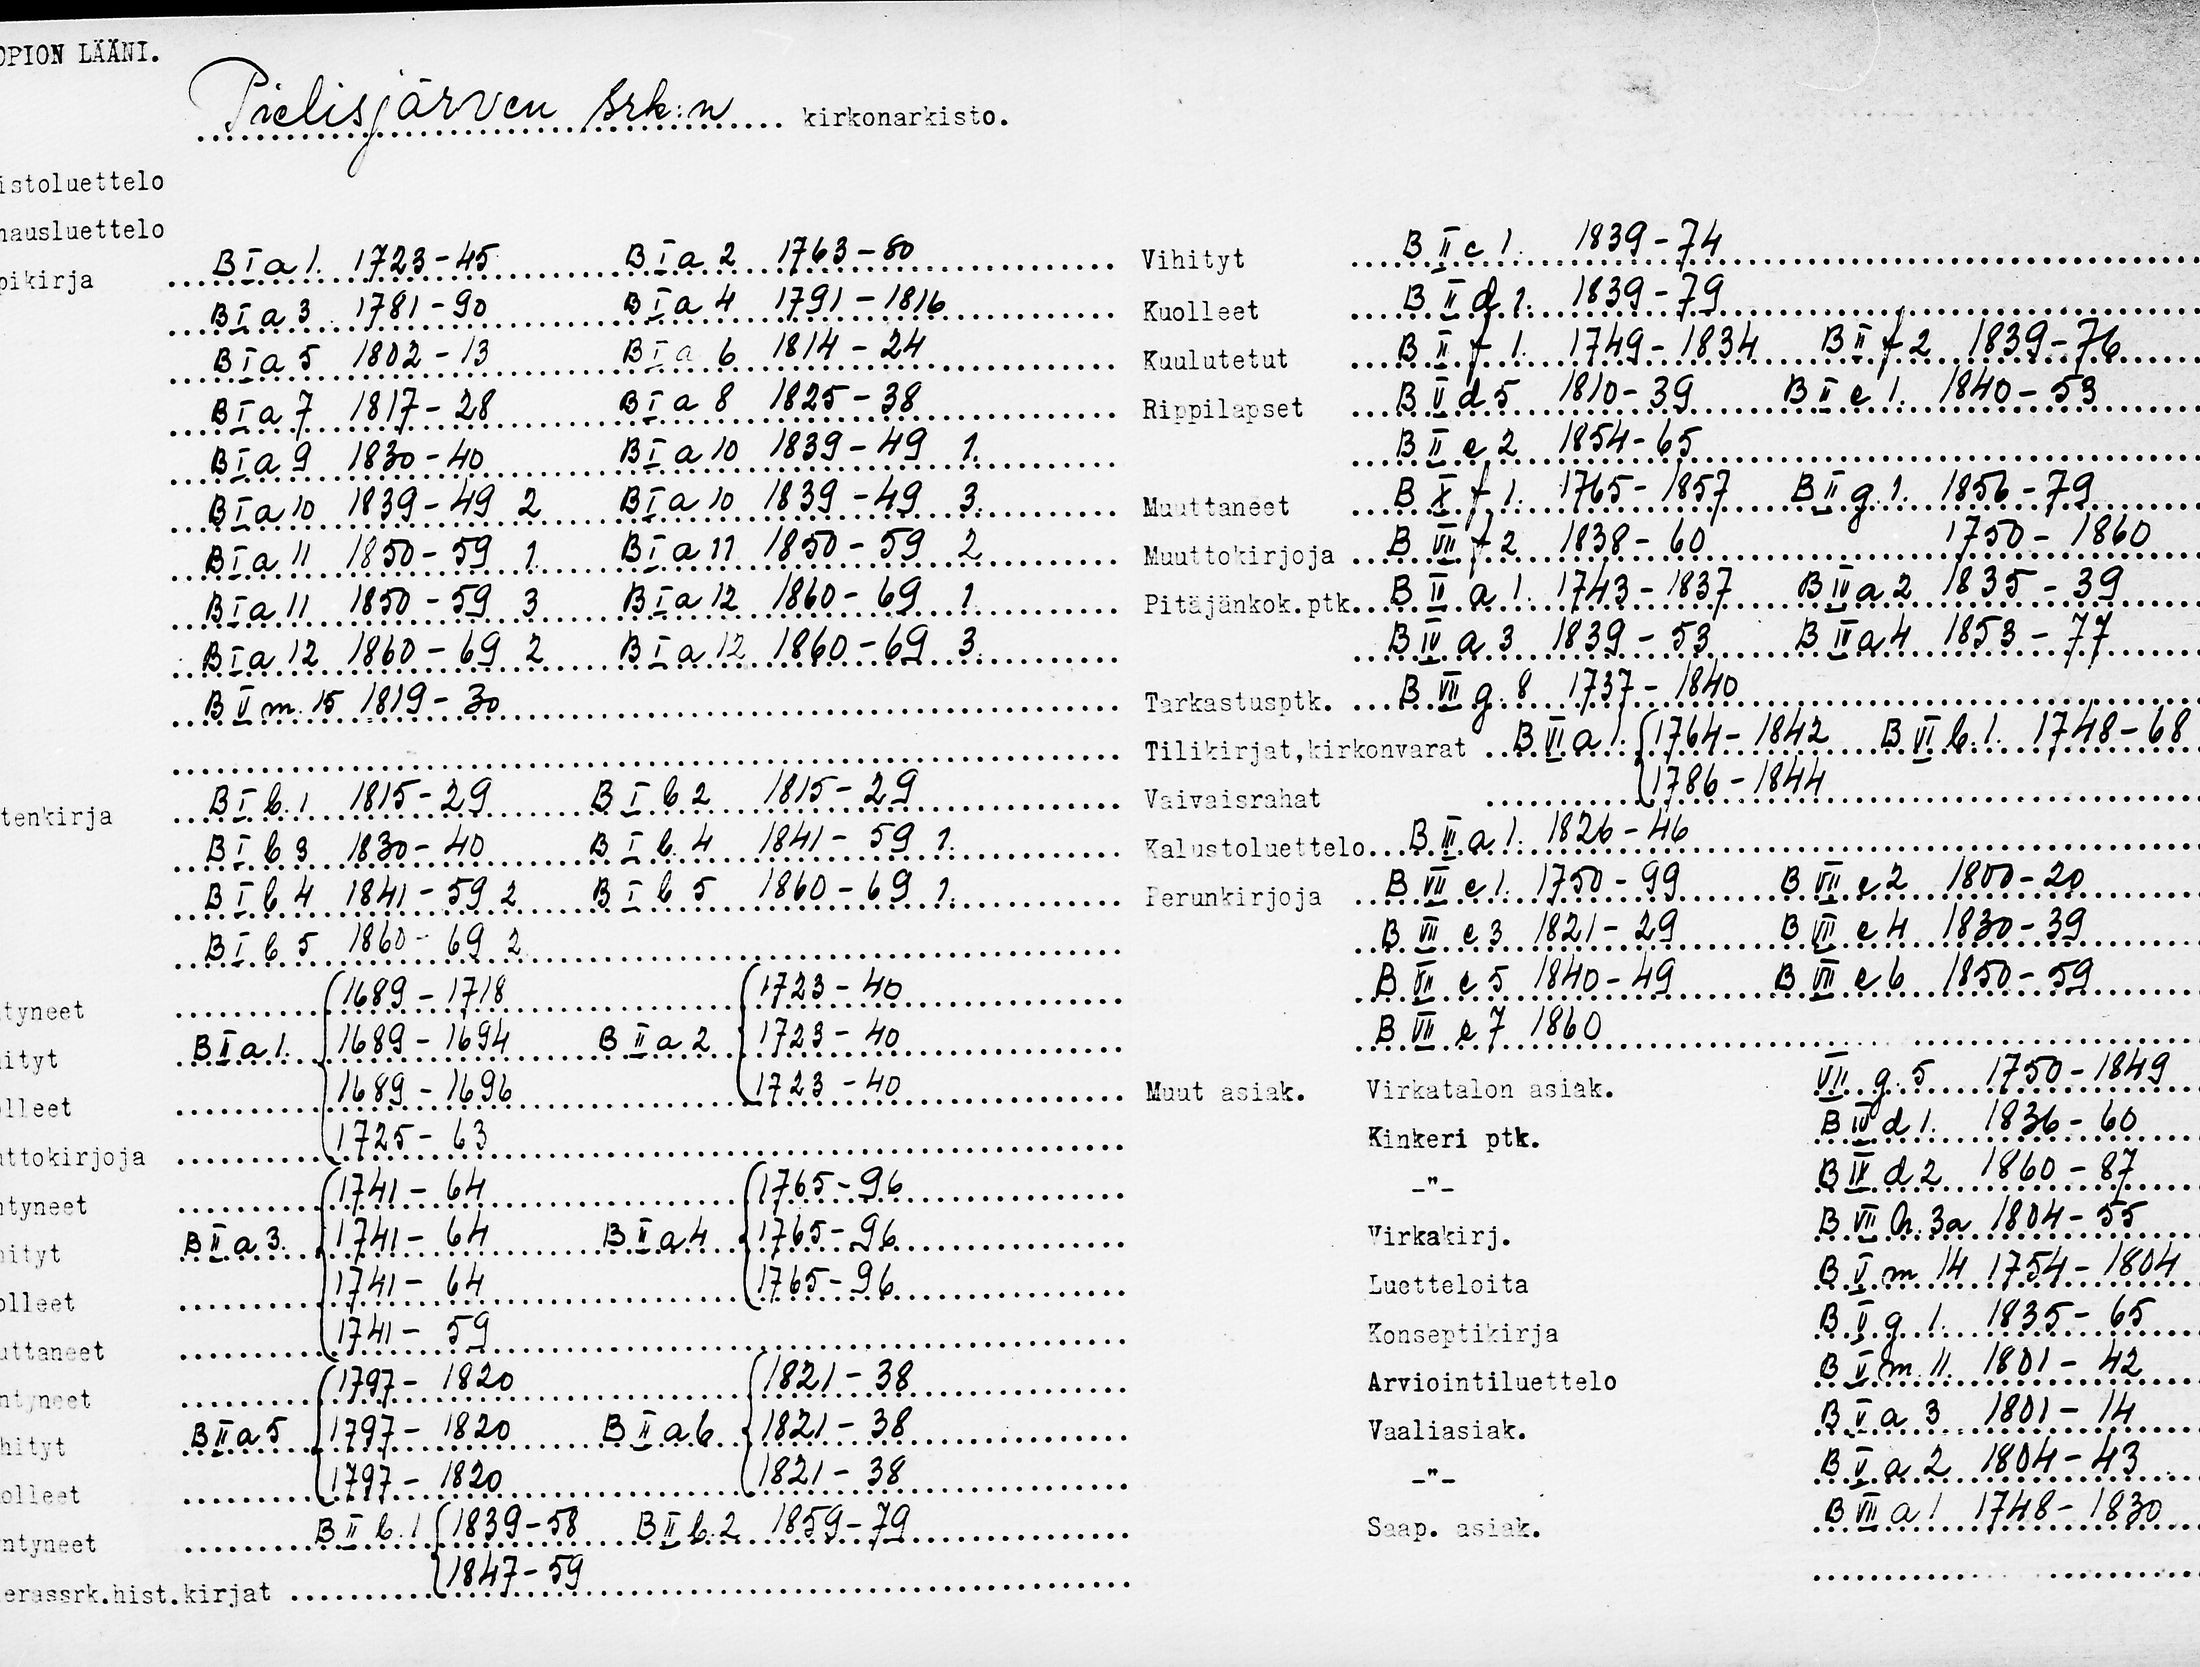 OPION LÄÄNI.
Pielisjärven srk:n kirkonarkisto.
istoluettelo
hausluettelo
pikirja B I a 1. 1723-45 B I a 2 1763-80
B I a 3 1781-90 B I a 4 1791-1816
B I a 5 1802-13 B I a 6 1814-24
B I a 7 1817-28 B I a 8 1825-38
B I a 9 1830-40 B I a 10 1839-49 1.
B I a 10 1839-49 2 B I a 10 1839-49 3.
B I a 11 1850-59 1. B I a 11 1850-59 2
B I a 11 1850-59 3 B I a 12 1860-69 1.
B I a 12 1860-69 2 B I a 12 1860-69 3.
B V m. 15 1819-30
tenkirja B I b. 1 1815-29 B I b 2 1815-29
B I b 3 1830-40 B I b. 4 1841-59 1.
B I b 4 1841-59 2 B I b 5 1860-69 1.
B I b 5 1860-69 2
tyneet 1689-1718 1723-40
hityt B I a 1. 1689-1694 B II a 2 1723-40
olleet 1689-1696 1723-40
uttokirjoja 1725-63
ntyneet 1741-64 1765-96
hityt B II a 3. 1741-64 B II a 4 1765-96
olleet 1741-64 1765-96
uttaneet 1741-59
ntyneet 1797-1820 1821-38
hityt B II a 5 1797-1820 B II a 6 1821-38
olleet 1797-1820 1821-38
ntyneet B II b. 1 1839-58 B II b. 2 1859-79
erassrk.hist.kirjat 1847-59
Vihityt B II c 1. 1839-74
Kuolleet B II d 1. 1839-79
Kuulutetut B II f 1. 1749-1834 B II f 2 1839-76
Rippilapset B V d 5 1810-39 B II e 1. 1840-53
B II e 2 1854-65
Muuttaneet B X f 1. 1765-1857 B II g. 1. 1856-79
Muuttokirjoja B VII f 2 1838-60 1750-1860
Pitäjänkok.ptk. B IV a 1. 1743-1837 B IV a 2 1835-39
B IV a 3 1839-53 B IV a 4 1853-77
Tarkastusptk. B VII g. 8 1737-1840
Tilikirjat,kirkonvarat B VI a 1. 1764-1842 B VI b. 1. 1748-68
Vaivaisrahat 1786-1844
Kalustoluettelo B III a 1. 1826-46
Perunkirjoja B VII e 1. 1750-99 B VII e 2 1800-20
B VII e 3 1821-29 B VII e 4 1830-39
B VII e 5 1840-49 B VII e 6 1850-59
B VII e 7 1860
Muut asiak. Virkatalon asiak. VII g. 5 1750-1849
Kinkeri ptk. B IV d 1. 1836-60
-"- B IV d 2 1860-87
Virkakirj. B VII h. 3a 1804-55
Luetteloita B V m 14 1754-1804
Konseptikirja B V g 1. 1835-65
Arviointiluettelo B V m. 11. 1801-42
Vaaliasiak. B V a 3 1801-14
-"- B V a 2 1804-43
Saap. asiak. B VII a 1 1748-1830